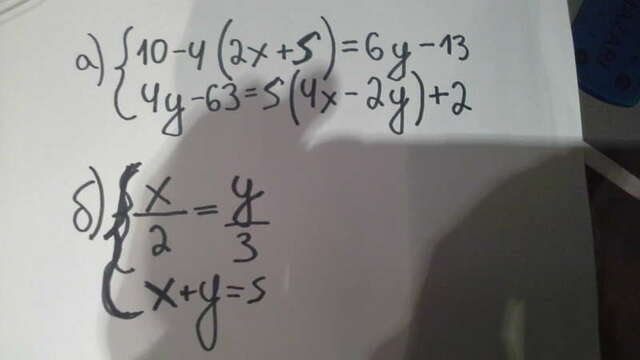 а) { 10-4(2x+5)=6y-13
4y-63=5(4x-2y)+2
б) { x/2 = y/3
x+y=5